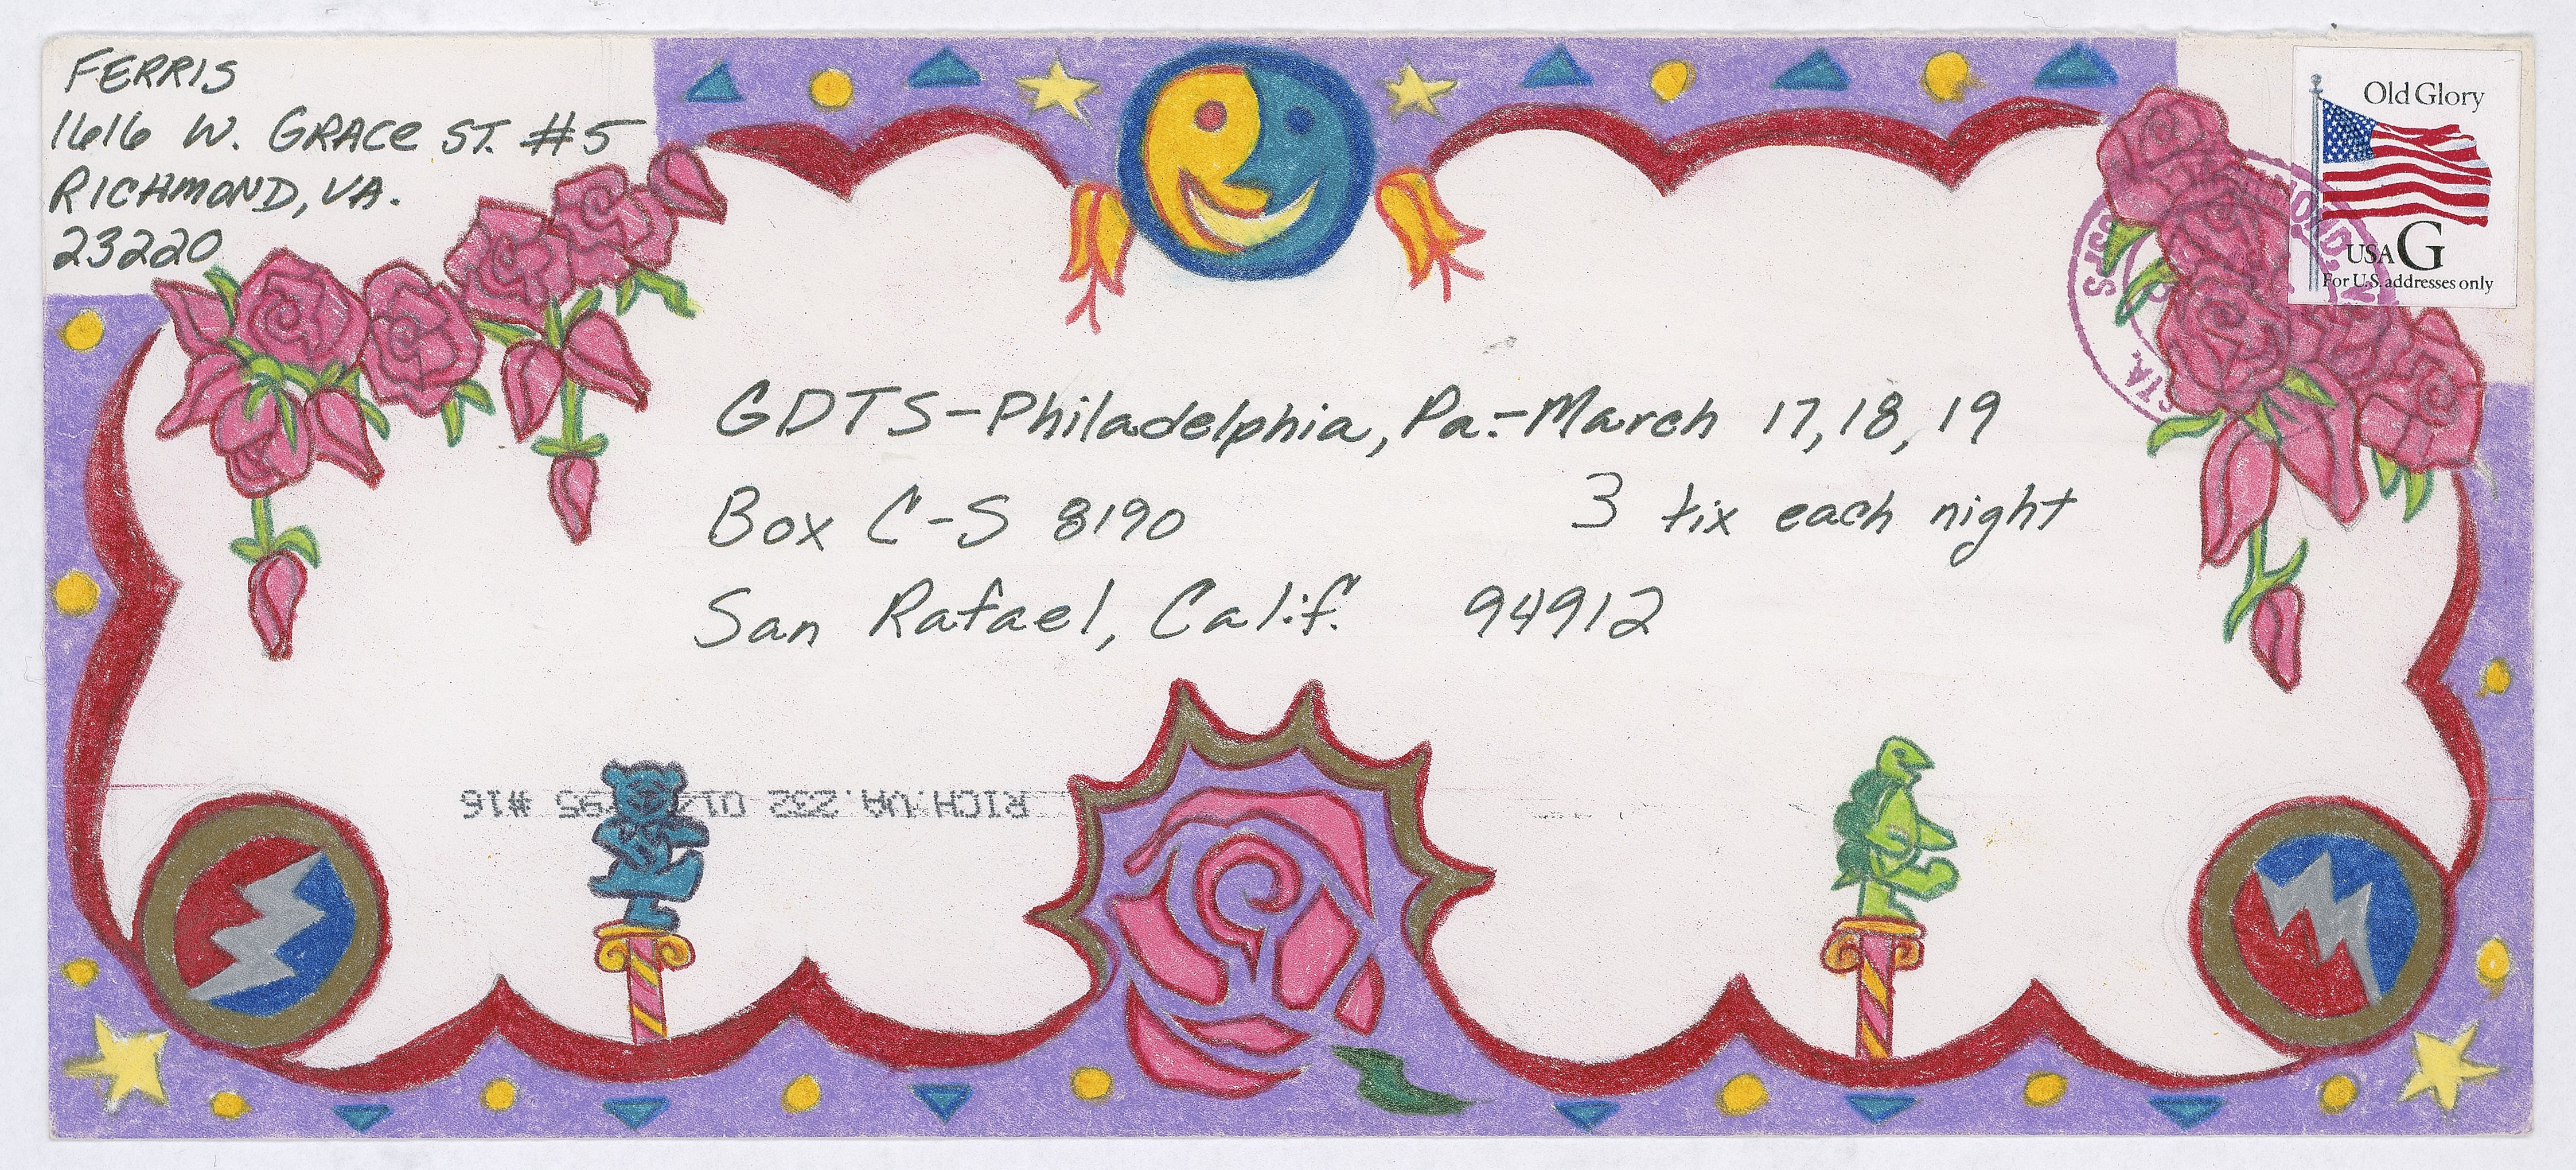 FERRIS
1616 W. GRACE ST. #5
RICHMOND, VA.
23220
Old Glory
USA G
For U.S. addresses only
USPS
STA.
GDTS-Philadelphia, Pa.-March 17, 18, 19
Box C-S 8190
3 tix each night
San Rafael, Calif. 94912
RICH.VA.232
95 #16